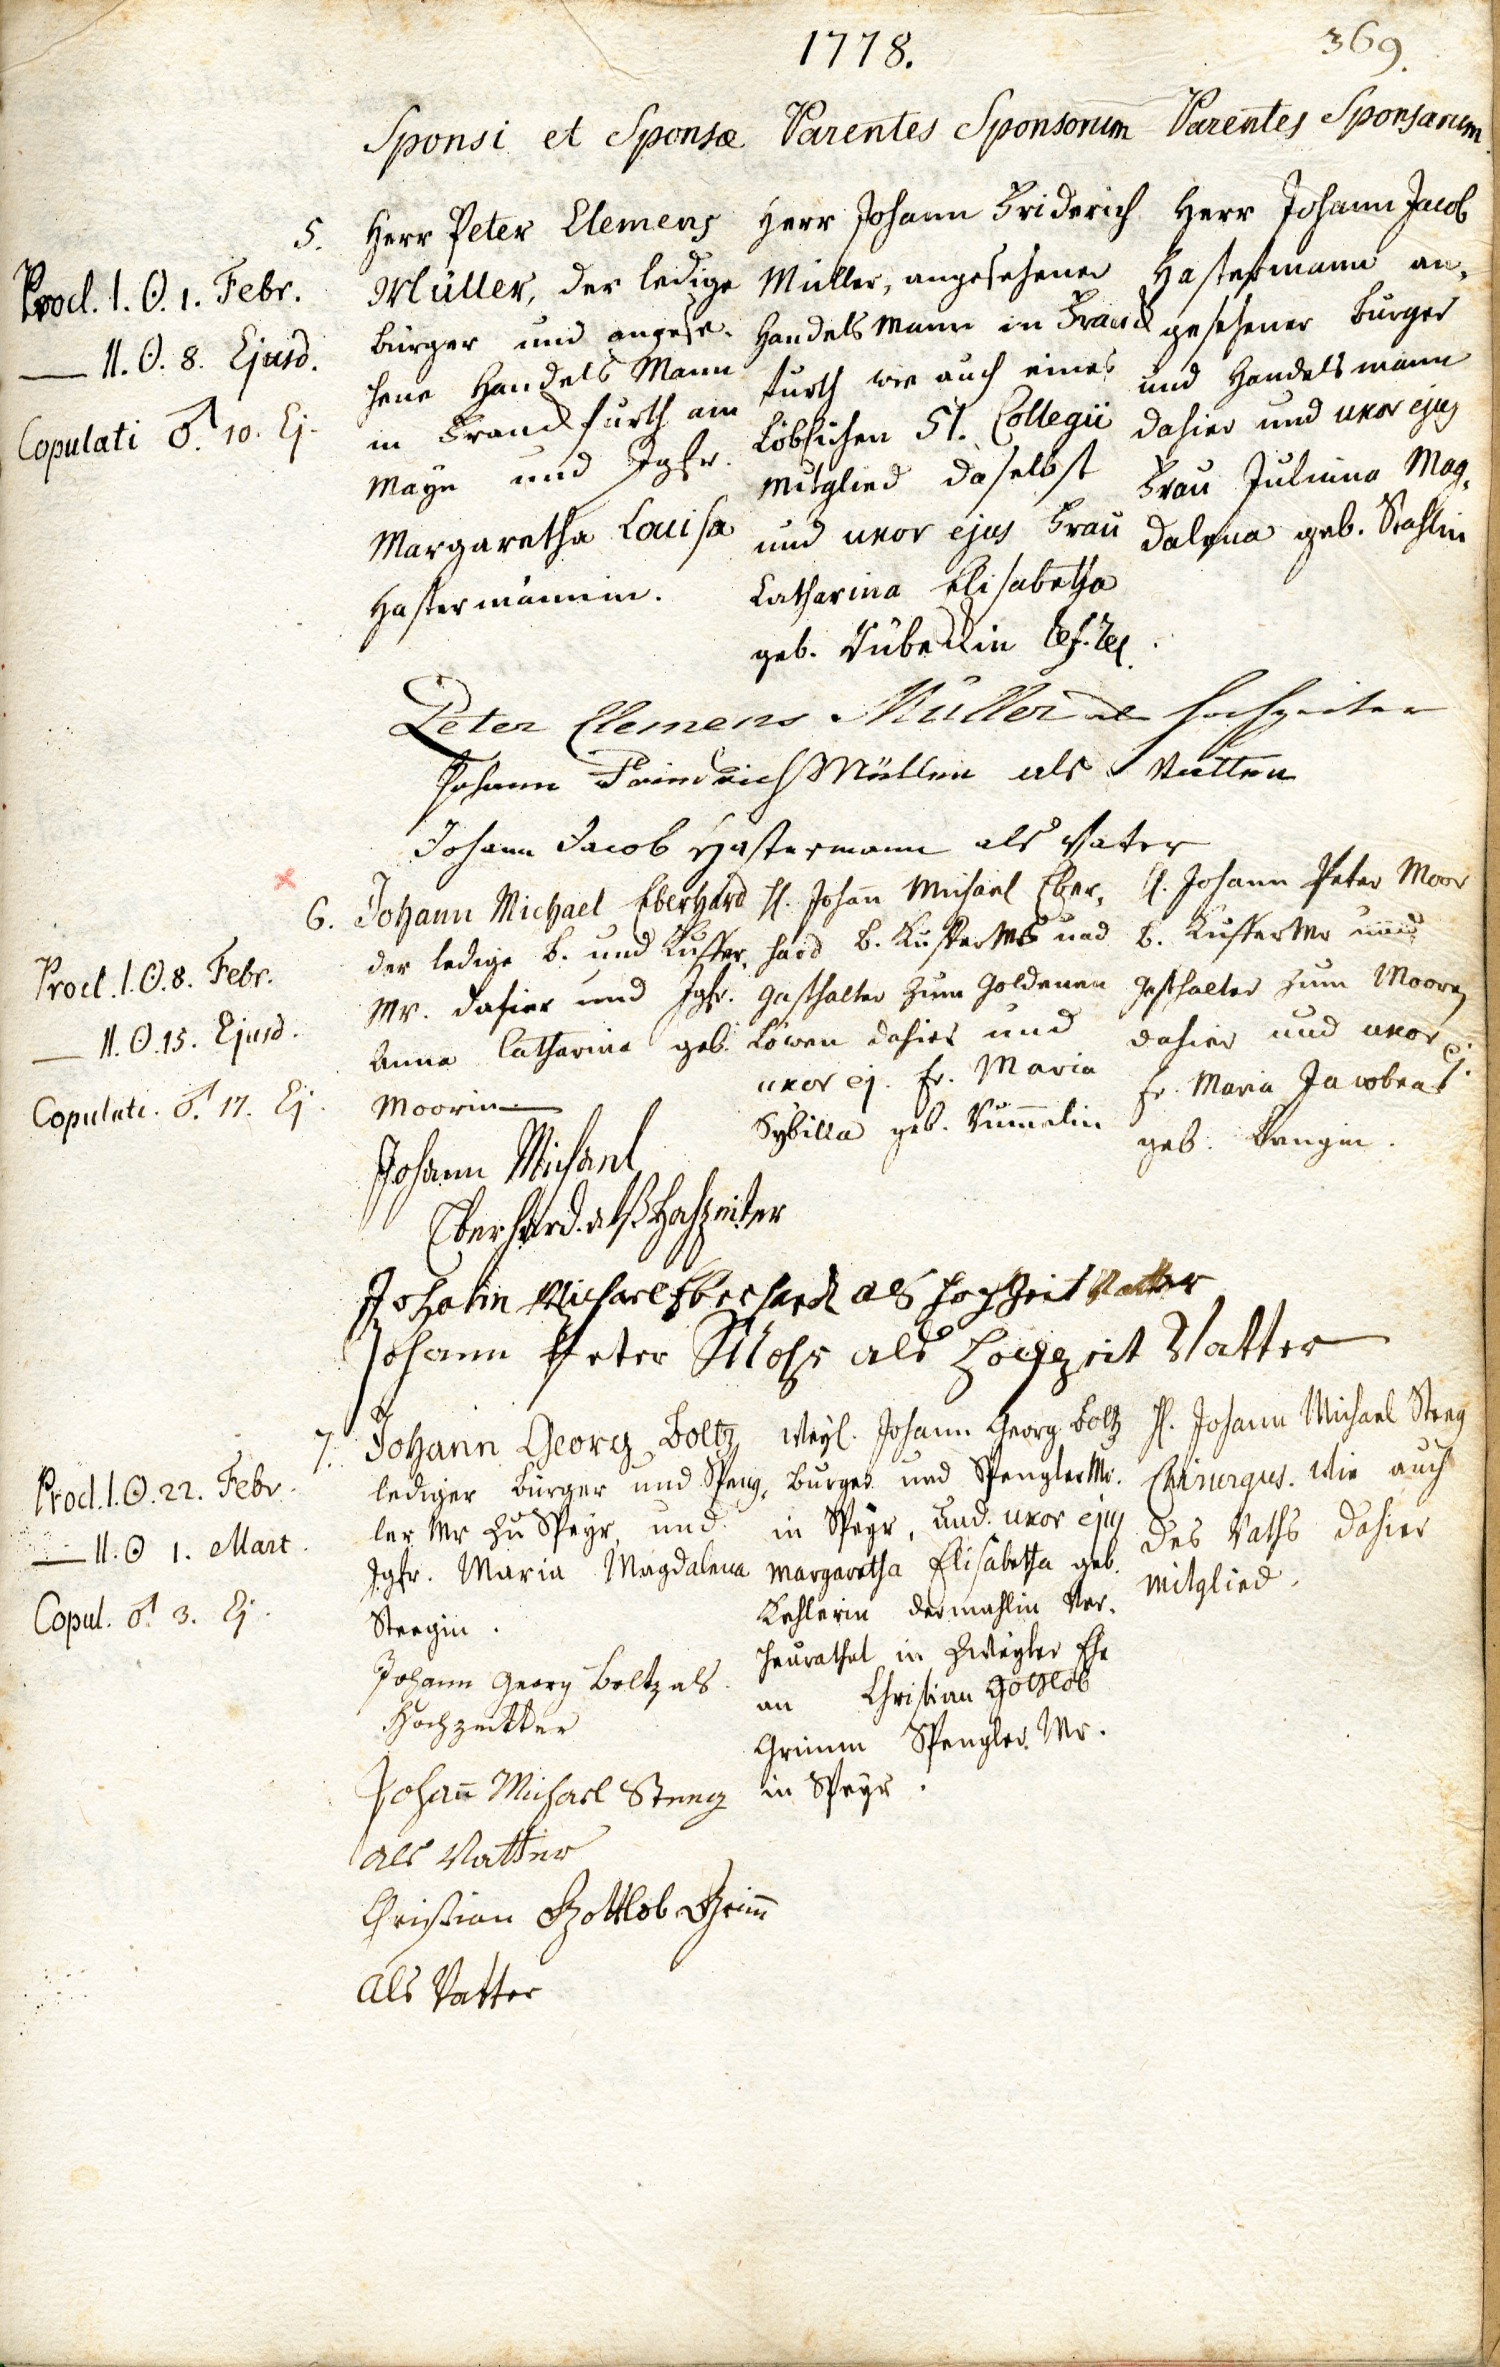 1778.
369.
Sponsi et Sponsæ
Parentes Sponsorum
Parentes Sponsarum.
Procl. I. ☉. 1. Febr.
— II. ☉. 8. Ejusd.
Copulati ♂. 10. Ej.
5. Herr Peter Clemens
Müller, der ledige
Burger und angese-
hene Handels Mann
in Franckfurth am
Mayn und Jgfr.
Margaretha Louisa
Hastermännin.
Herr Johann Friderich
Müller, angesehener
Handels Mann in Franck
furth wie auch eines
Löblichen 51. Collegii
Mitglied daselbst
und uxor ejus Frau
Catharina Elisabetha
geb.
Herr Johann Jacob
Hastermann an-
gesehener Burger
und Handelsmann
dahier und uxor ejus
Frau Juliana Mag-
dalena geb. Stahlin
Peter Clemens Müller als Hochzeiter
Johann Friedrich Müller als Vatter
Johann Jacob Hastermann als Vater
Procl. I. ☉. 8. Febr.
— II. ☉. 15. Ejusd.
Copulati. ♂. 17. Ej.
6. Johann Michael Eberhard
der ledige B. und Kuffer-
Mr. dahier und Jgfr.
Anna Catharina geb.
Moorin
H. Johan̄ Michael Eber-
hard B. Kuffer Mr und
Gasthalter zum Goldenen
Löwen dahier und
uxor ej. Fr. Maria
Sybilla geb.
H. Johann Peter Moor
B. Kuffer Mr und
Gasthalter zum Mooren
dahier und uxor ej.
Fr. Maria Jacobea
geb. Langin.
Johann Michael
Eberhard. alß Hochzeiter
Johann Michael Eberhard als Hochzeit Vatter
Johann Peter Mohr als Hochzeit Vatter
Procl. I. ☉. 22. Febr.
— II. ☉ 1. Mart.
Copul. ♂. 3. Ej.
7. Johann Georg Boltz
lediger Burger und Speng-
ler Mr zu Speyr, und
Jgfr. Maria Magdalena
Steegin.
Weyl. Johann Georg Boltz
Burger und Spengler Mr.
in Speyr, und uxor ejus
Margaretha Elisabetha geb.
Kehlerin dermahlin Ver-
heurathet in Zweyter Ehe
an Christian Gottlob
Grimm Spengler Mr.
in Speyr.
H. Johann Michael Steeg
Chirurgus. Wie auch
des Raths dahier
Mitglied.
Johann Georg Boltz als
Hochzeitter
Johan̄ Michael Steeg
als Vatter
Christian Gottlob Grim̄
als Vatter